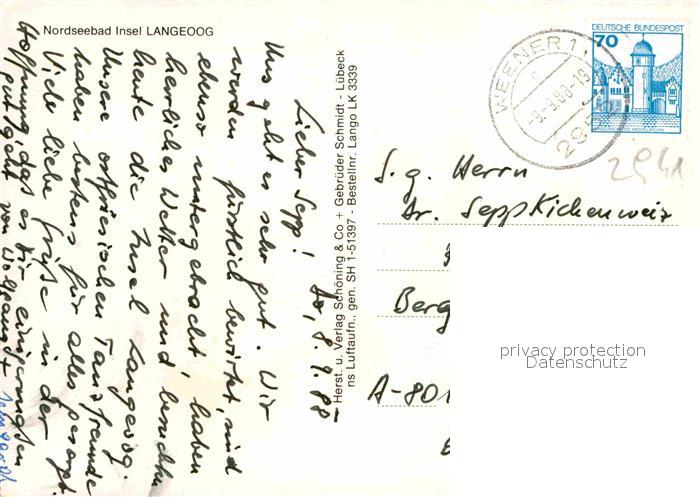 Nordseebad Insel LANGEOOG
Do, 8.9.88
Lieber Sepp!
Uns geht es sehr gut. Wir
werden fürstlich bewirtet, sind
ebenso untergebracht, haben
herrliches Wetter und besuchten
heute die Insel Langeoog.
Unsere ostfriesischen Tanzfreunde
haben bestens für alles gesorgt.
Viele liebe Grüße in der
Hoffnung, dass es Dir einigermaßen
gut geht von Wolfgang +
Herst. u. Verlag Schöning & Co + Gebrüder Schmidt - Lübeck
ns Luftaufn., gen. SH 1-51397 - Bestellnr. Lango LK 3339
WEENER 1
c
-9.-9.88-18
295
DEUTSCHE BUNDESPOST
70
2941
S. g. Herrn
Dr. Sepp Kichenweiz
Berg
A-801
privacy protection
Datenschutz